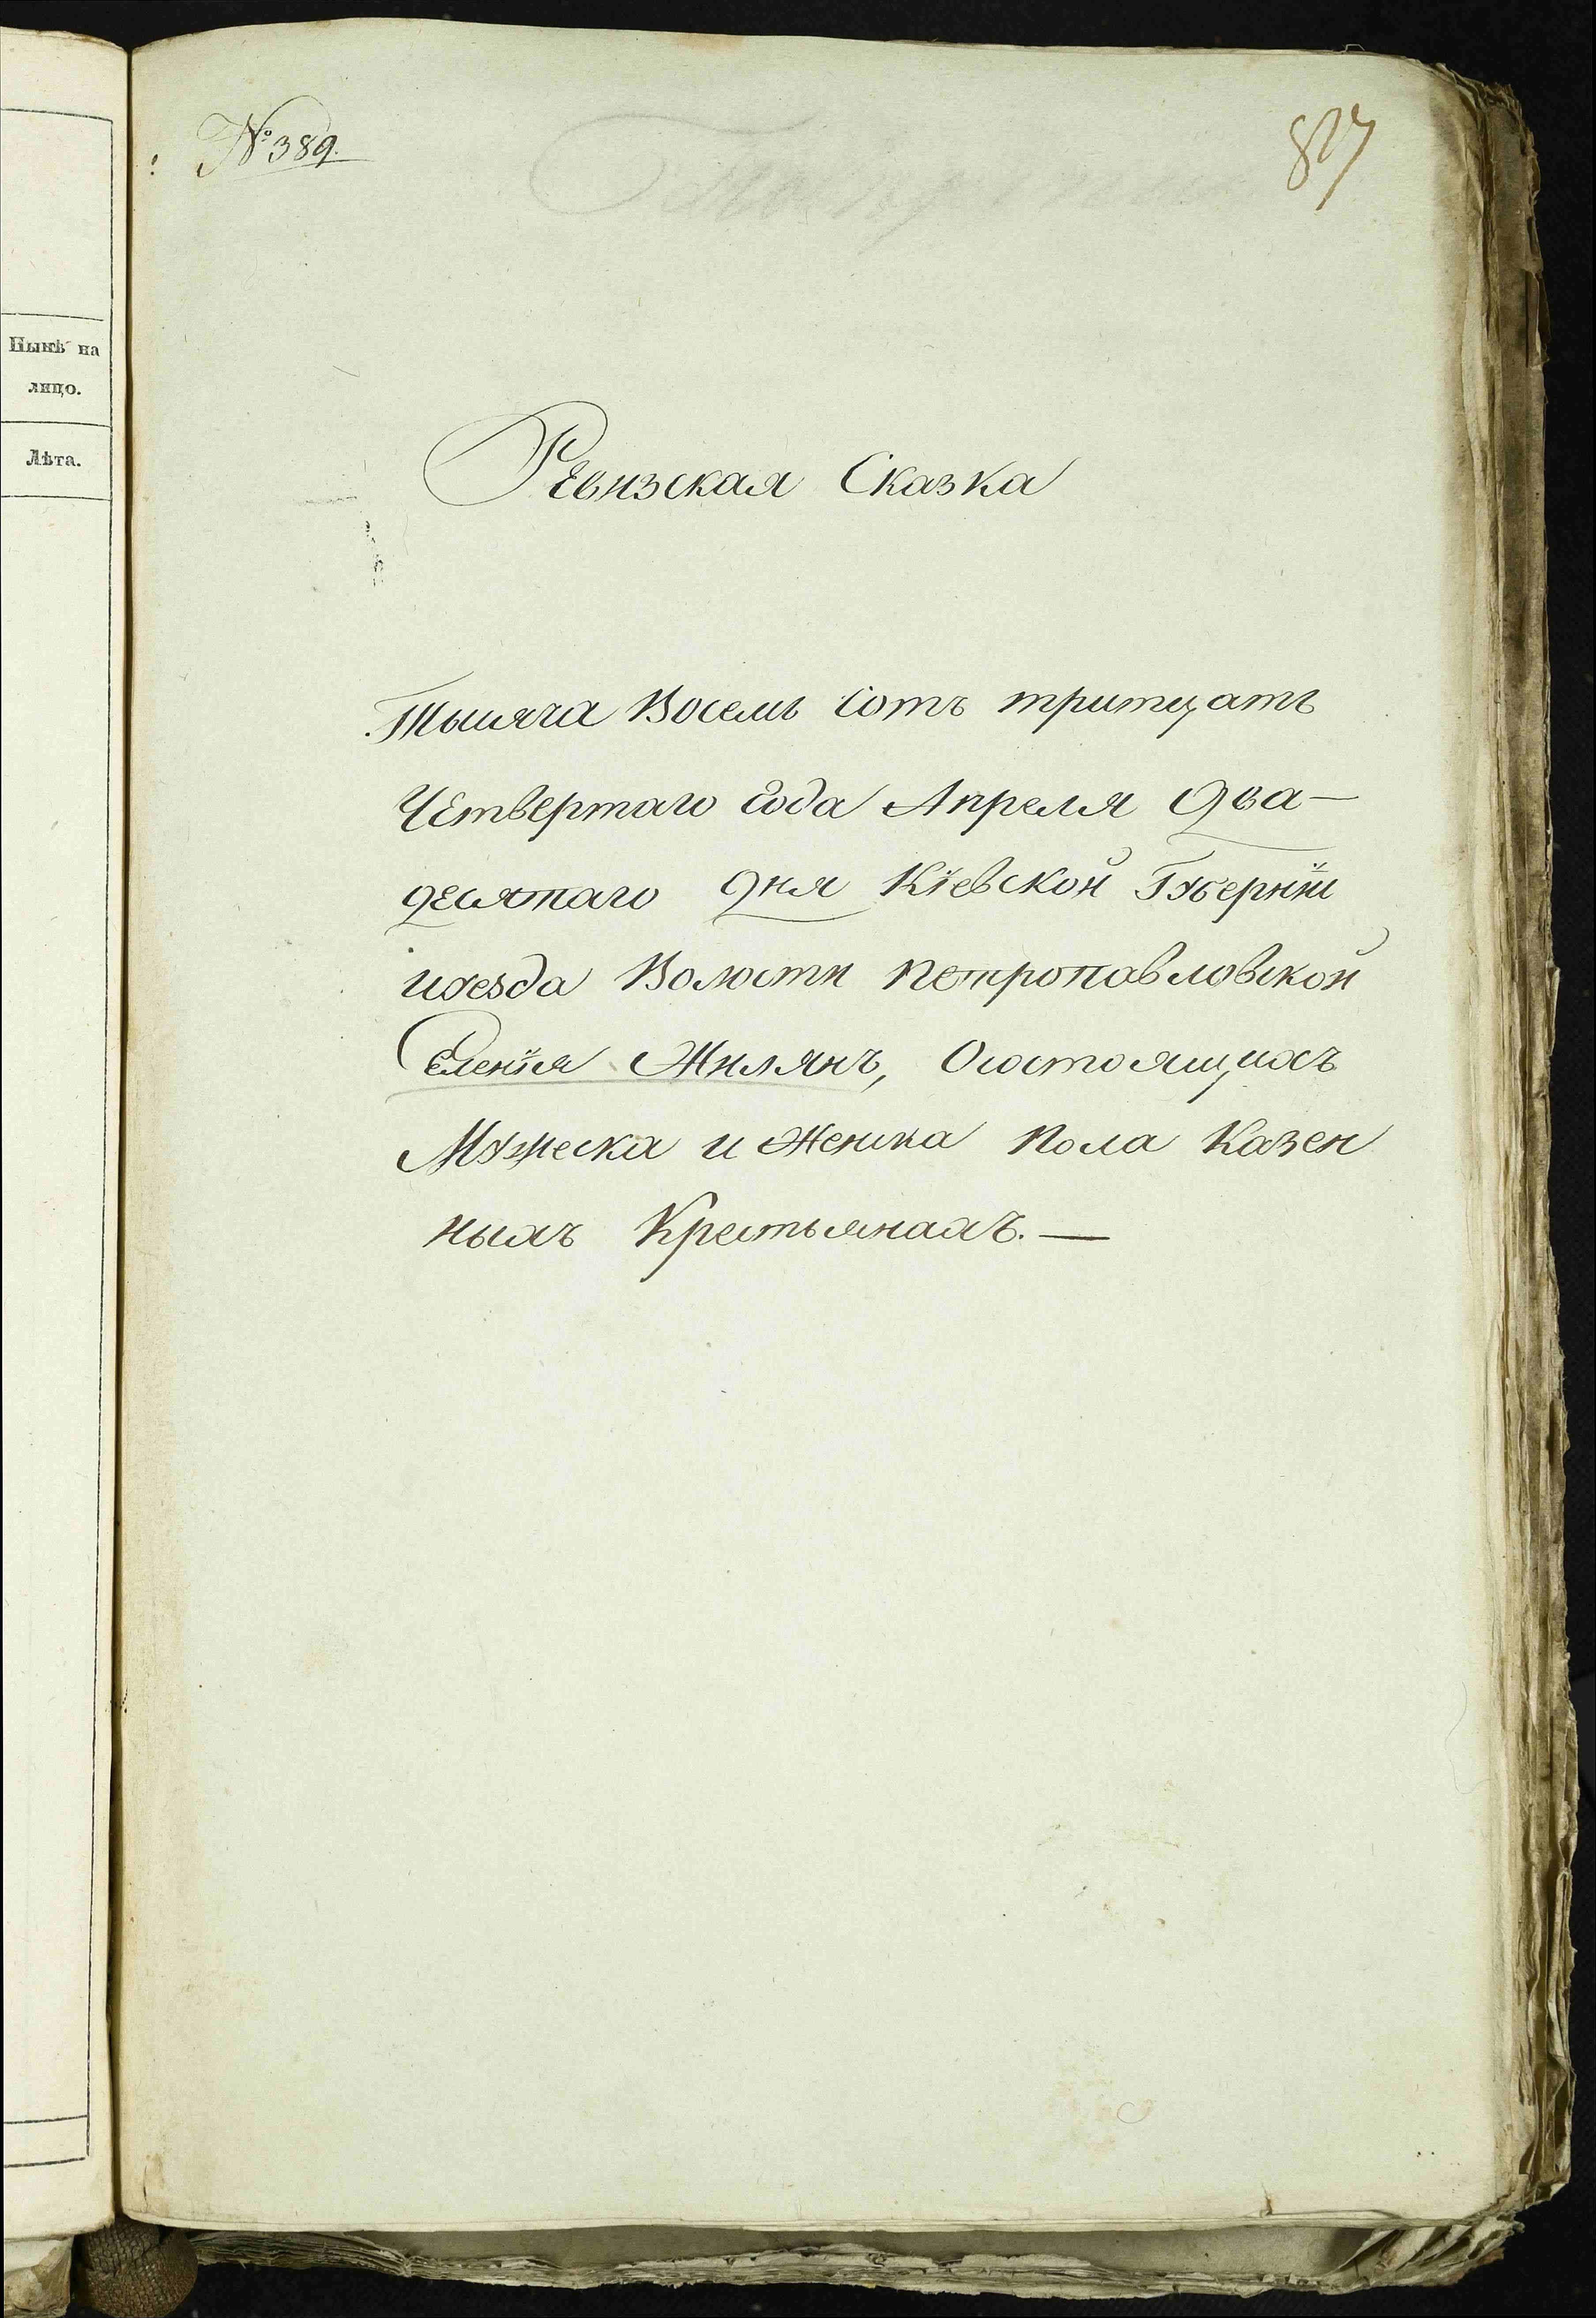 Нынѣ на
лицо.
Лѣта.
№ 389.
827
Ревизская Сказка
Тысяча Восемь Сотъ тритцать
Четвертаго Года Апреля Два-
десятаго Дня Кіевской Губерніи
иуезда Волости Петропавловской
Селенія Жилянъ, Осостоящихъ
Мужеска и Женска Пола Казен
ныхъ Крестьянахъ. —